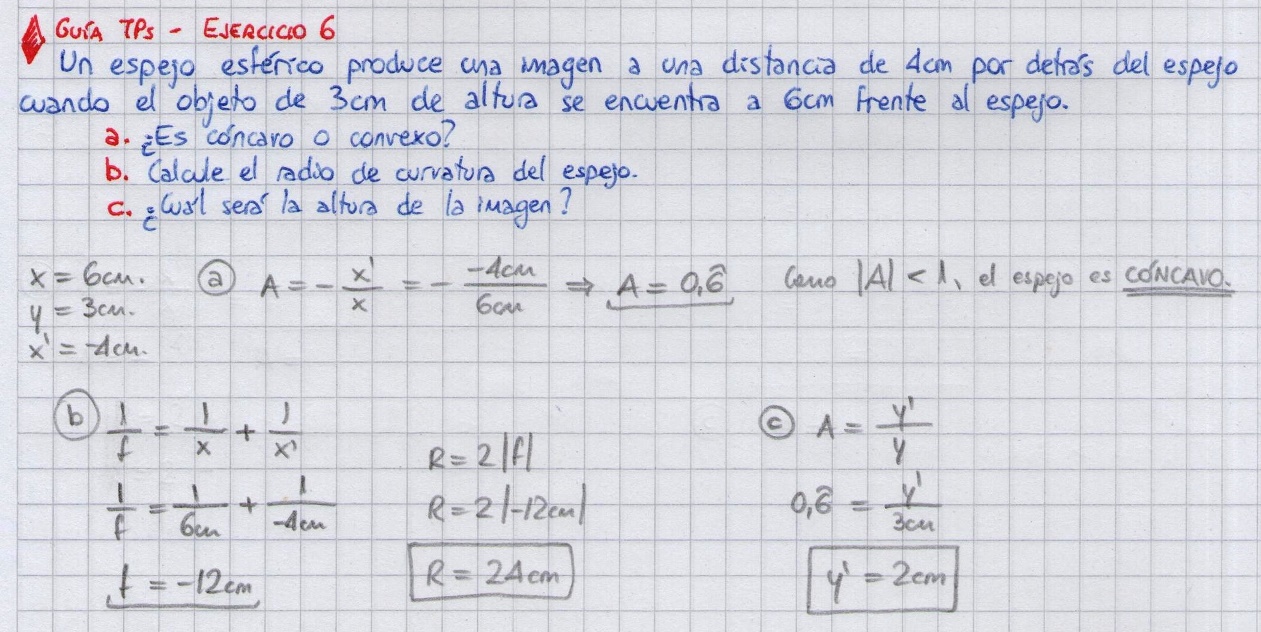 GUÍA TPs - EJERCICIO 6
Un espejo esférico produce una imagen a una distancia de 4cm por detrás del espejo
cuando el objeto de 3cm de altura se encuentra a 6cm frente al espejo.
a. ¿Es cóncavo o convexo?
b. Calcule el radio de curvatura del espejo.
c. ¿Cuál será la altura de la imagen?
x = 6cm.
y = 3cm.
x' = -4cm.
ⓐ A = - x'/x = - -4cm/6cm ⇒ A = 0,6̂ Como |A| < 1, el espejo es CÓNCAVO.
ⓑ 1/f = 1/x + 1/x'
1/f = 1/6cm + 1/-4cm
f = -12cm
R = 2|f|
R = 2|-12cm|
R = 24cm
ⓒ A = y'/y
0,6̂ = y'/3cm
y' = 2cm